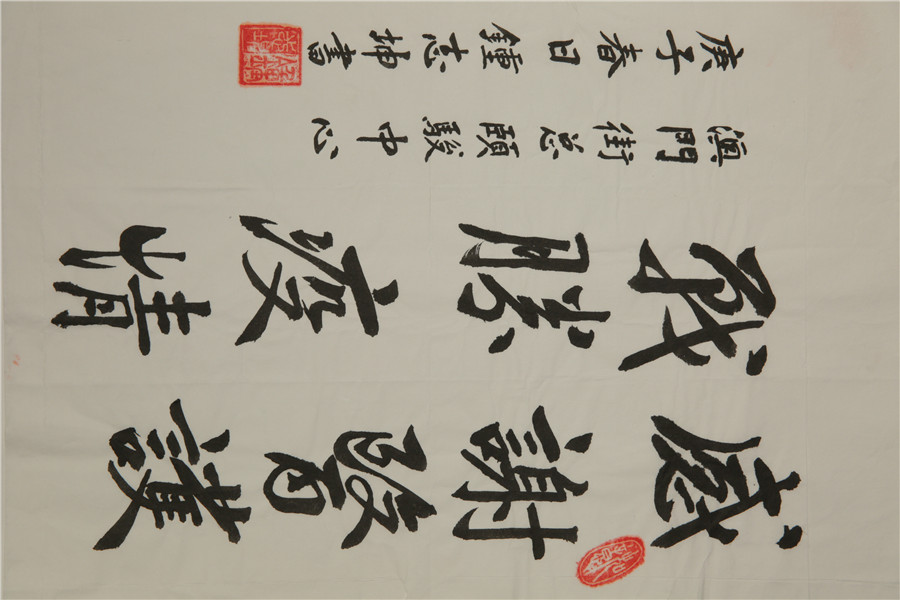 感謝醫護
战勝疫情
澳門街总頤駿中心
庚子春日鍾志坤書